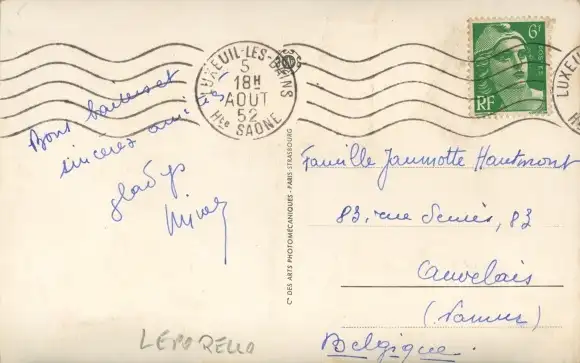 LUXEUIL-LES-BAINS
5
18H
AOUT
52
Hte SAÔNE
6F
RF
LUXEU
Bons baisers et
sincères amitiés
gladys
Cie DES ARTS PHOTOMÉCANIQUES - PARIS STRASBOURG
Famille Jaumotte Hautmont
83, rue 83
Auvelais
(Namur)
Belgique.
LEPORELLO